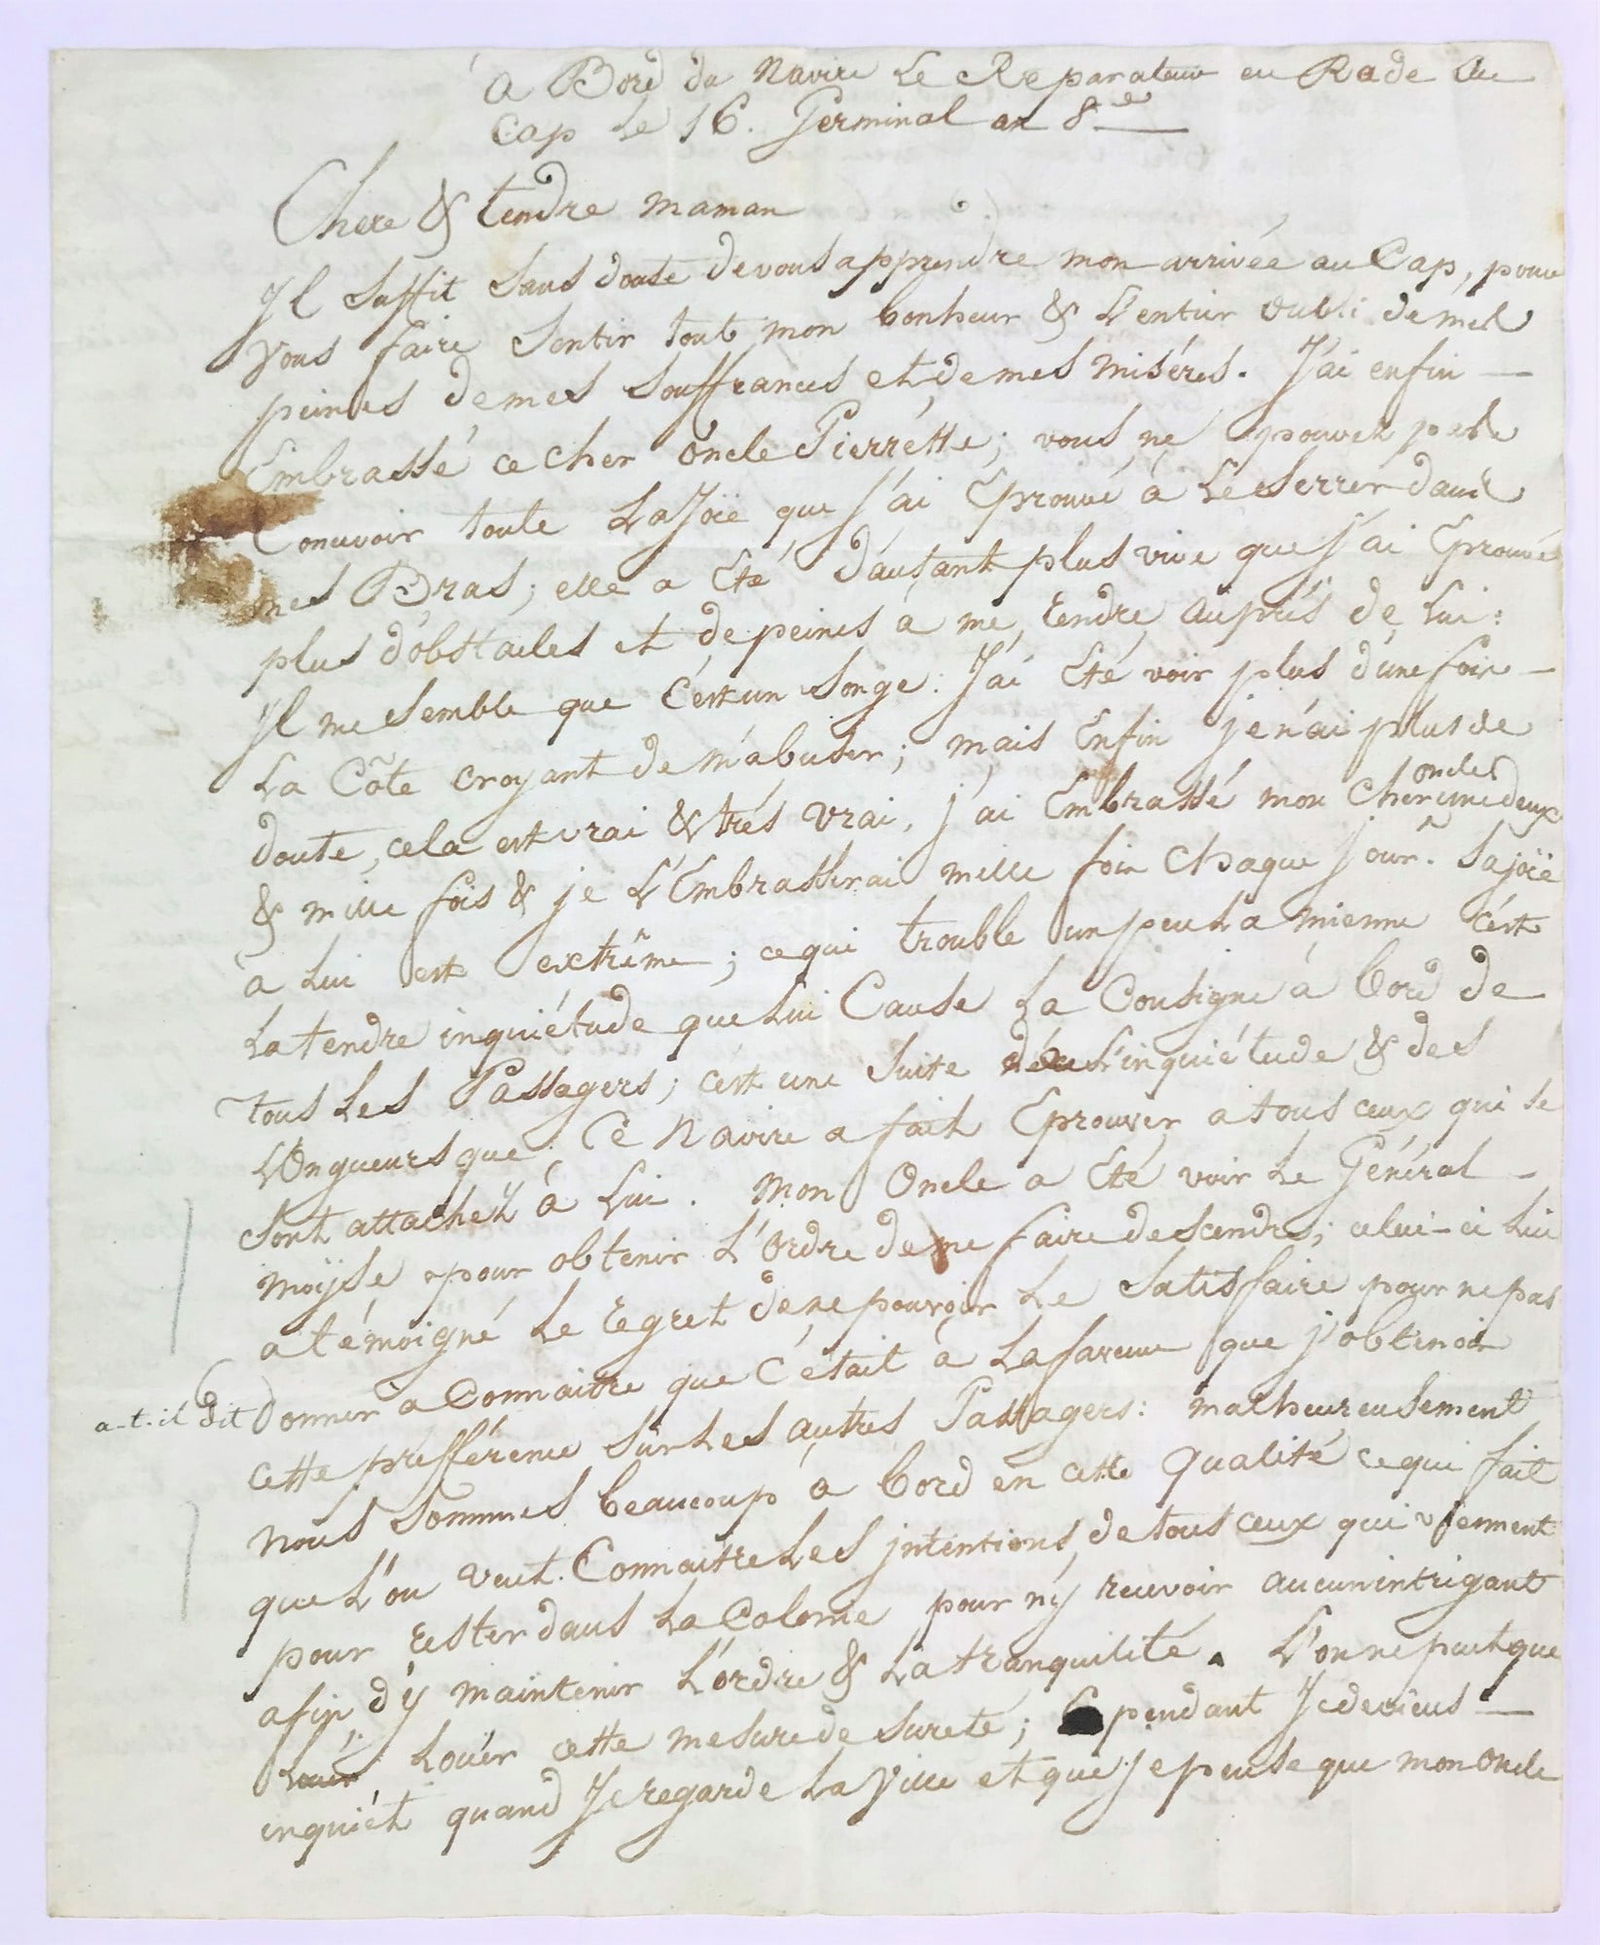 à Bord du Navire Le Reparateur en Rade du
Cap le 16. Germinal an 8.e
Chere & tendre maman
Yl suffit sans doute de vous apprendre mon arrivée au Cap, pour
vous faire sentir tout mon bonheur & L'entier oubli de mes
peines de mes souffrances et de mes miséres. J'ai enfin
Embrassé ce cher oncle Pierrette; vous ne pouvez pas
Concevoir toute La Joïe que J'ai Eprouvé à Le Serrer dans
mes Bras; elle a Eté d'autant plus vive que J'ai Eprouvé
plus d'obstacles et de peines à me rendre auprès de Lui:
Yl me Semble que C'est un Songe: J'ai Eté voir plus d'une fois
La Côte croyant de m'abuser; mais Enfin je n'ai plus de
doute, cela est vrai & trés vrai, j'ai Embrassé mon Cher oncle une deux
& mille fois & je L'Embrasserai mille fois Chaque jour. Sa joïe
à Lui est extrême; ce qui trouble un peu La mienne c'est
La tendre inquiétude que Lui Cause La Consigne à bord de
tous Les Passagers; c'est une Suite de L'inquiétude & des
Longueurs que Ce Navire a fait Eprouver a tous ceux qui se
Sont attachez à Lui. Mon Oncle a Eté voir Le Général
Moÿse pour obtenir L'Ordre de me faire descendre; celui-ci Lui
a témoigné Le regret de ne pouvoir Le Satisfaire pour ne pas
a-t-il dit donner à Connaitre que C'était à La faveur que j'obtenois
cette prefférence sur Les autres Passagers: malheureusement
nous Sommes beaucoup à bord en cette qualité ce qui fait
que L'on veut Connaitre Les intentions de tous ceux qui viennent
pour rester dans La Colonie pour n'y recevoir aucun intrigant
afin d'y maintenir L'ordre & La tranquilité. L'on ne peut que
Louer Louër cette mesure de Sureté; Cependant Je deviens
inquièt quand Je regarde La Ville et que je pense que mon Oncle